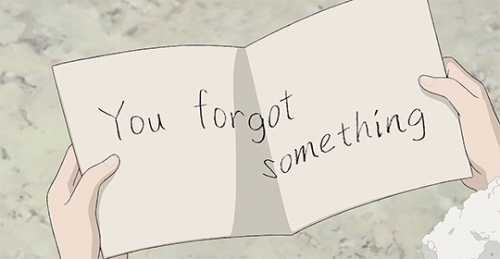 You forgot
something